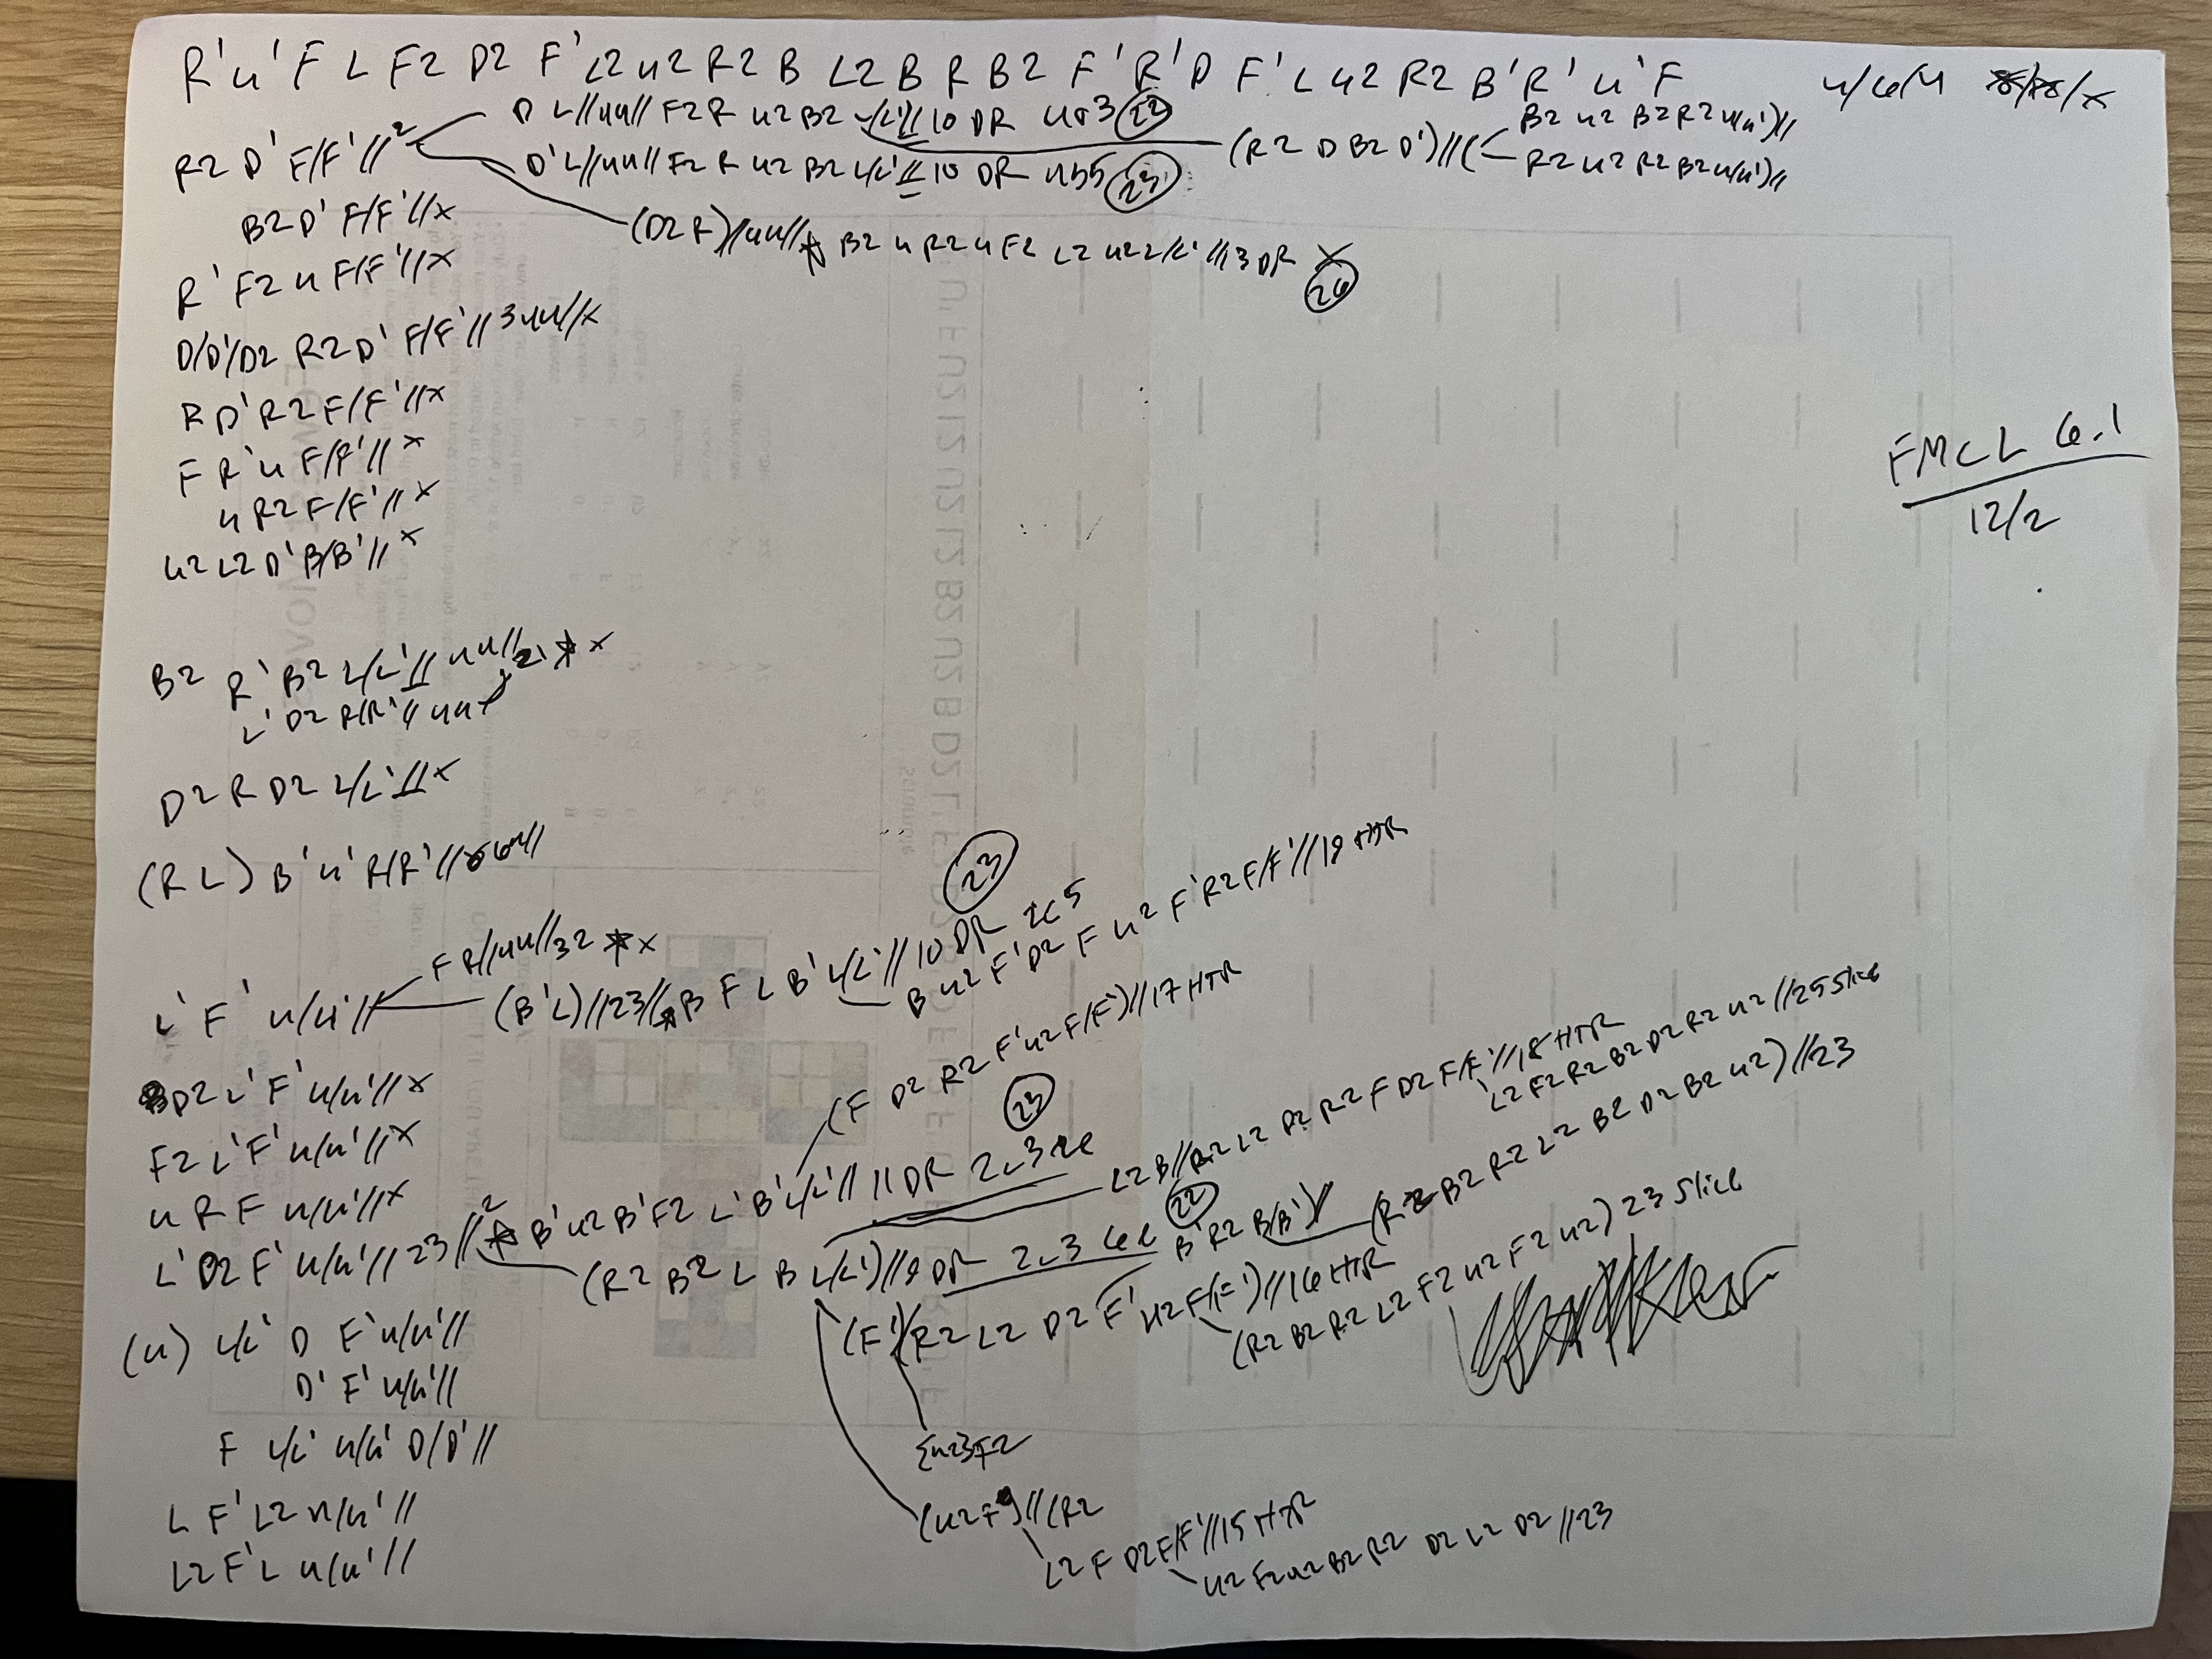 R' u' F L F2 D2 F' L2 u2 R2 B L2 B R B2 F' R' D F' L u2 R2 B' R' u' F 4/6/4
R2 D' F/F'//2
D L//4u// F2 R u2 B2 L/L'// 10 DR 4a3 (22)
D' L//4u// F2 R u2 B2 L/L'// 10 DR 4b5 (23)
(R2 D B2 D')//(
B2 u2 B2 R2 u/u')//
R2 u2 R2 B2 u/u')//
(D2 R)//4u// B2 u R2 u F2 L2 u2 L/L'//13 DR x
(26)
B2 D' F/F'//x
R' F2 u F/F'//x
D/D'/D2 R2 D' F/F'//3 4u//x
R D' R2 F/F'//x
F R' u F/F'//x
u R2 F/F'//x
u2 L2 D' B/B'//x
FMCL 6.1
12/2
B2 R' B2 L/L'// 4u//21 * x
L' D2 R/R'// 4u
D2 R D2 L/L'//x
(R L) B' u' R/R'//
L' F' u/u'//
F R//4u//32 * x
(B' L)//23// B F L B' L/L'//10 DR 2c5
(23)
B u2 F' D2 F u2 F' R2 F/F'//18 HTR
D2 L' F' u/u'//x
F2 L' F' u/u'//x
u R F u/u'//x
L' D2 F' u/u'//23//2
* B' u2 B' F2 L' B' L/L'//11 DR 2c3
(23)
(F D2 R2 F' u2 F/F')//17 HTR
L2 B//R2 L2 D2 R2 F D2 F/F'//18 HTR
L2 F2 R2 B2 D2 R2 u2 //25 slice
(R2 B2 L B L/L')//9 DR 2c3 6e
(22)
B' R2 B/B')//
(R2 B2 R2 L2 B2 D2 B2 u2)//23
(F')(R2 L2 D2 F' u2 F/F')//16 HTR
(R2 B2 R2 L2 F2 u2 F2 u2) 23 slice
(u) L/L' D F' u/u'//
D' F' u/u'//
F L/L' u/u' D/D'//
{u2} F2
L F' L2 u/u'//
L2 F' L u/u'//
(u2 F')//(R2
L2 F D2 F/F'//15 HTR
u2 F2 u2 B2 R2 D2 L2 D2 //23